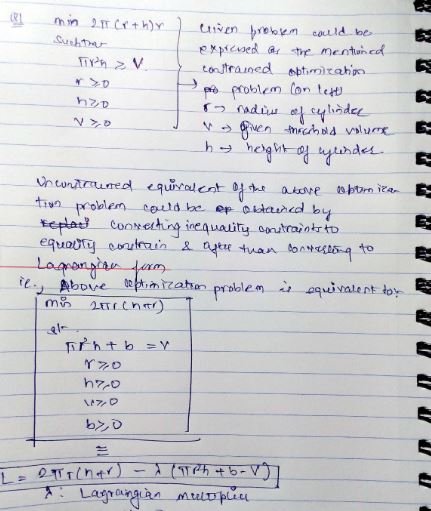 Q1
min 2π(r+h)r
Such that
πr²h ≥ V
r ≥ 0
h ≥ 0
V ≥ 0
Given problem could be
expressed as the mentioned
contrained optimization
problem (on left)
r → radius of cylinder
v → given threshold volume
h → height of cylinder.
Unconstrained equivalent of the above optimiza
tion problem could be obtained by
converting inequality contraints to
equality contrain & after than converting to
Lagrangian form
ie., Above optimization problem is equivalent to:
min 2πr(h+r)
st.
πr²h + b = V
r ≥ 0
h ≥ 0
v ≥ 0
b ≥ 0
≅
L = 2πr(h+r) - λ(πr²h + b - V)
λ: Lagrangian multiplier